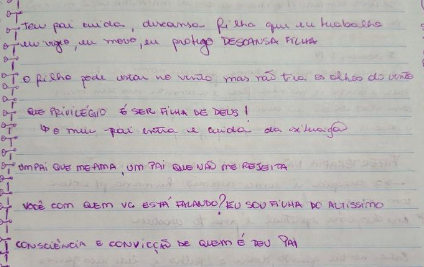 Teu pai cuida, descansa filha que eu trabalho
eu vigio, eu movo, eu protejo DESCANSA FILHA
O filho pode estar no vento mas não tira os olhos do vento
QUE PRIVILÉGIO É SER FILHA DE DEUS!
e meu pai entra e cuida da situação
UM PAI QUE ME AMA, UM PAI QUE NÃO ME REJEITA
VOCÊ COM QUEM VC ESTÁ FALANDO? EU SOU FILHA DO ALTISSIMO
CONSCIÊNCIA E CONVICÇÃO DE QUEM É SEU PAI